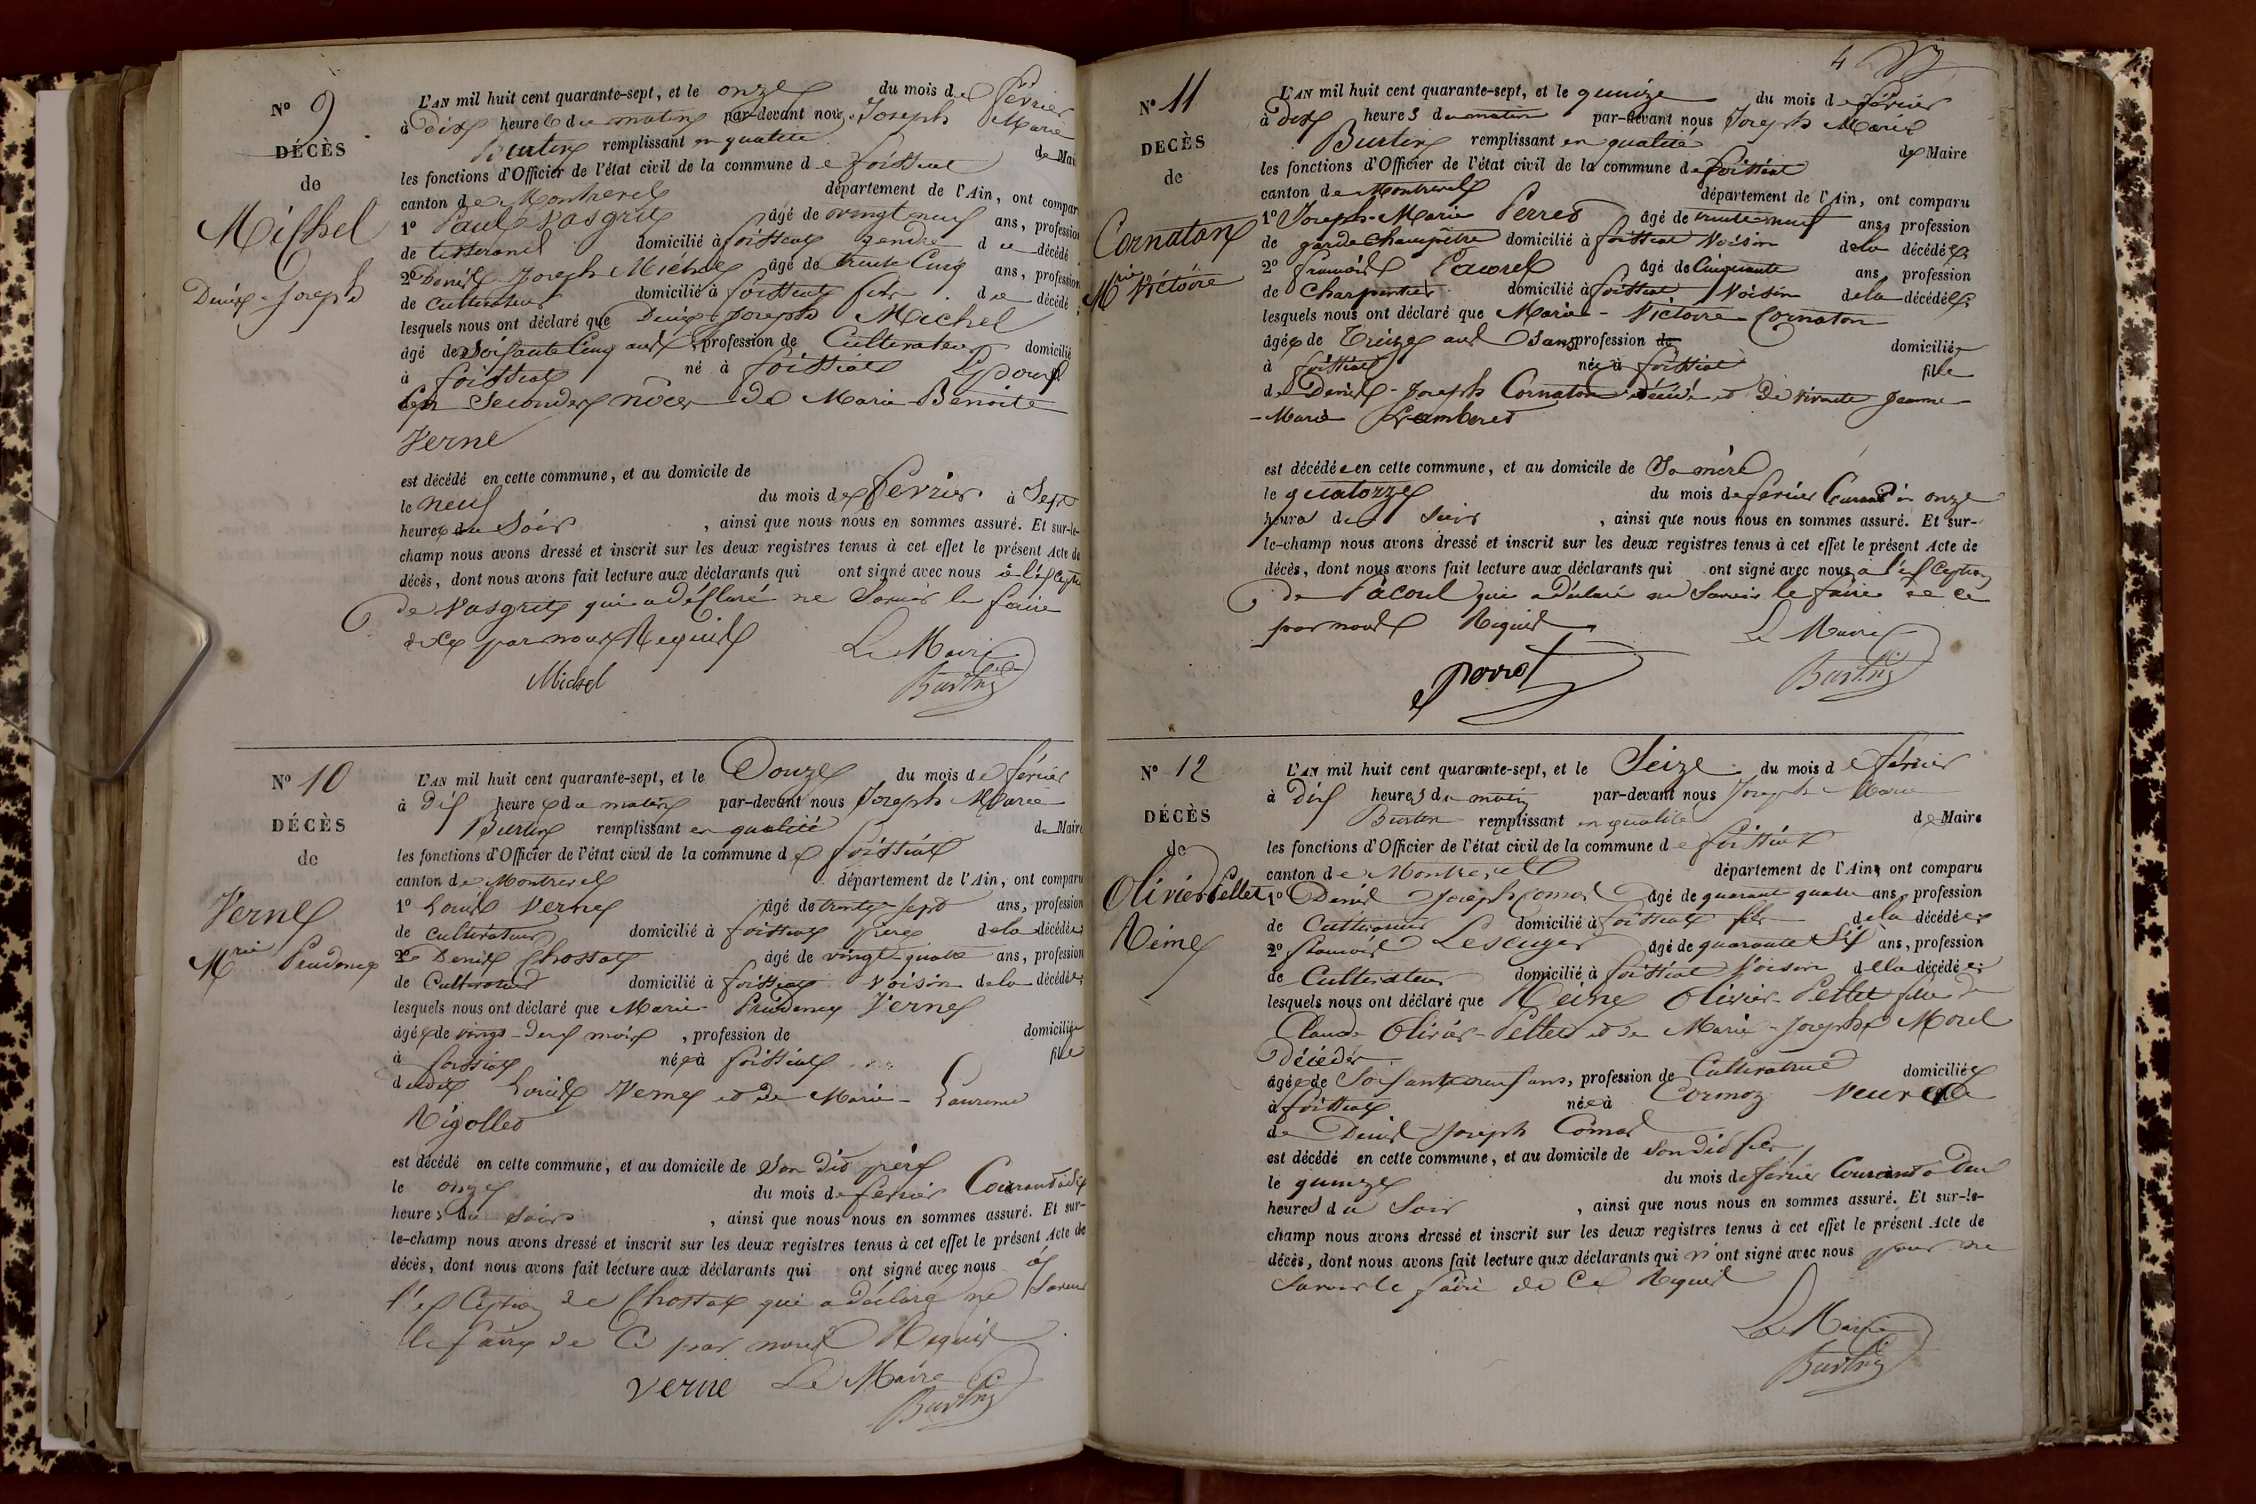 N° 9
DÉCÈS
de
Michel
Denis Joseph
L'AN mil huit cent quarante-sept, et le onze du mois de février
à dix heures du matin par-devant nous Joseph Marie
Burtin remplissant en qualité de Mai
les fonctions d'Officier de l'état civil de la commune de foissiat
canton de Montrevel département de l'Ain, ont compar
1° Paul Vasgrit âgé de vingt neuf ans, profession
de tisserand domicilié à foissiat gendre du décédé
2° Denis Joseph Michel âgé de trente Cinq ans, profession
de Cultivateur domicilié à foissiat fils du décédé ;
lesquels nous ont déclaré que Denis Joseph Michel
âgé de Soisante Cinq ans profession de Cultivateur domicilié
à foissiat né à foissiat Epoux
en Secondes nôces de Marie Benoite
Verne
est décédé en cette commune, et au domicile de
le neuf du mois de fevrier à Sept
heures du Soir , ainsi que nous nous en sommes assuré. Et sur-le-
champ nous avons dressé et inscrit sur les deux registres tenus à cet effet le présent Acte de
décès, dont nous avons fait lecture aux déclarants qui ont signé avec nous à l'esCeption
de Vasgrit qui a déclaré ne Savoir le faire
de Ce par nous Requis
Le Maire
Michel
Burtin
N° 10
DÉCÈS
de
Verne
Mrie Prudence
L'AN mil huit cent quarante-sept, et le Douze du mois de février
à dis heures du matin par-devant nous Joseph Marie
Burtin remplissant en qualité de Maire
les fonctions d'Officier de l'état civil de la commune de foissiat
canton de Montrevel département de l'Ain, ont comparu
1° Louis Verne âgé de trente Sept ans, profession
de cultivateur domicilié à foissiat père de la décédée
2° Denis Chossat âgé de vingt quatre ans, profession
de Cultivateur domicilié à foissiat Voisin de la décédée ;
lesquels nous ont déclaré que Marie Prudence Verne
âgée de vingt-deux mois , profession de domiciliée
à foissiat née à foissiat fille
dudit Louis Verne et de Marie - Laurence
Rigollet
est décédé en cette commune, et au domicile de Son dit père
le onze du mois de fevrier Courant à dix
heures du Soir , ainsi que nous nous en sommes assuré. Et sur-
le-champ nous avons dressé et inscrit sur les deux registres tenus à cet effet le présent Acte de
décès, dont nous avons fait lecture aux déclarants qui ont signé avec nous à
l'esCeption de Chossat qui a déclaré ne Savoir
le faire de Ce par nous Requis
Verne Le Maire
Burtin
4
N° 11
DÉCÈS
de
Cornaton
Mrie Victoire
L'AN mil huit cent quarante-sept, et le quinze du mois de février
à dix heures du matin par-devant nous Joseph Marie
Burtin remplissant en qualité de Maire
les fonctions d'Officier de l'état civil de la commune de foissiat
canton de Montrevel département de l'Ain, ont comparu
1° Joseph-Marie Perret âgé de trente neuf ans, profession
de garde champêtre domicilié à foissiat Voisin de la décédée
2° françois Pacoud âgé de Cinquante ans, profession
de Charpentier domicilié à foissiat Voisin de la décédée ;
lesquels nous ont déclaré que Marie - Victoire Cornaton
âgée de Treize ans Sans profession de domiciliée
à foissiat née à foissiat fille
de Denis-Joseph Cornaton décédé et de vivante Jeanne
-Marie Lamberet
est décédée en cette commune, et au domicile de Sa mère
le quatorze du mois de fevrier Courant à onze
heures du Soir , ainsi que nous nous en sommes assuré. Et sur-
le-champ nous avons dressé et inscrit sur les deux registres tenus à cet effet le présent Acte de
décès, dont nous avons fait lecture aux déclarants qui ont signé avec nous à l'esCeption
de Pacoud qui a déclaré ne Savoir le faire de ce
par nous Requis
Le Maire
Perret
Burtin
N° 12
DÉCÈS
de
Olivier Pellet
Reine
L'AN mil huit cent quarante-sept, et le Seize du mois de février
à Dix heures du matin par-devant nous Joseph Marie
Burtin remplissant en qualité de Maire
les fonctions d'Officier de l'état civil de la commune de foissiat
canton de Montrevel département de l'Ain, ont comparu
1° Denis Joseph Comas âgé de quarante quatre ans, profession
de Cultivateur domicilié à foissiat fils de la décédée
2° françois Lescuyer âgé de quarante Six ans, profession
de Cultivateur domicilié à foissiat Voisin de la décédée ;
lesquels nous ont déclaré que Reine Olivier-Pellet fille de
Claude Olivier-Pellet et de Marie-Josephe Morel
Décédés
âgée de Soisante neuf ans, profession de Cultivatrice domiciliée
à foissiat née à Cormoz Veuve
de Denis Joseph Comas
est décédé en cette commune, et au domicile de Son dit fils
le quinze du mois de fevrier Courant à Deux
heures du Soir , ainsi que nous nous en sommes assuré. Et sur-le-
champ nous avons dressé et inscrit sur les deux registres tenus à cet effet le présent Acte de
décès, dont nous avons fait lecture aux déclarants qui n'ont signé avec nous pour ne
Savoir le faire de Ce Requis
Le Maire
Burtin